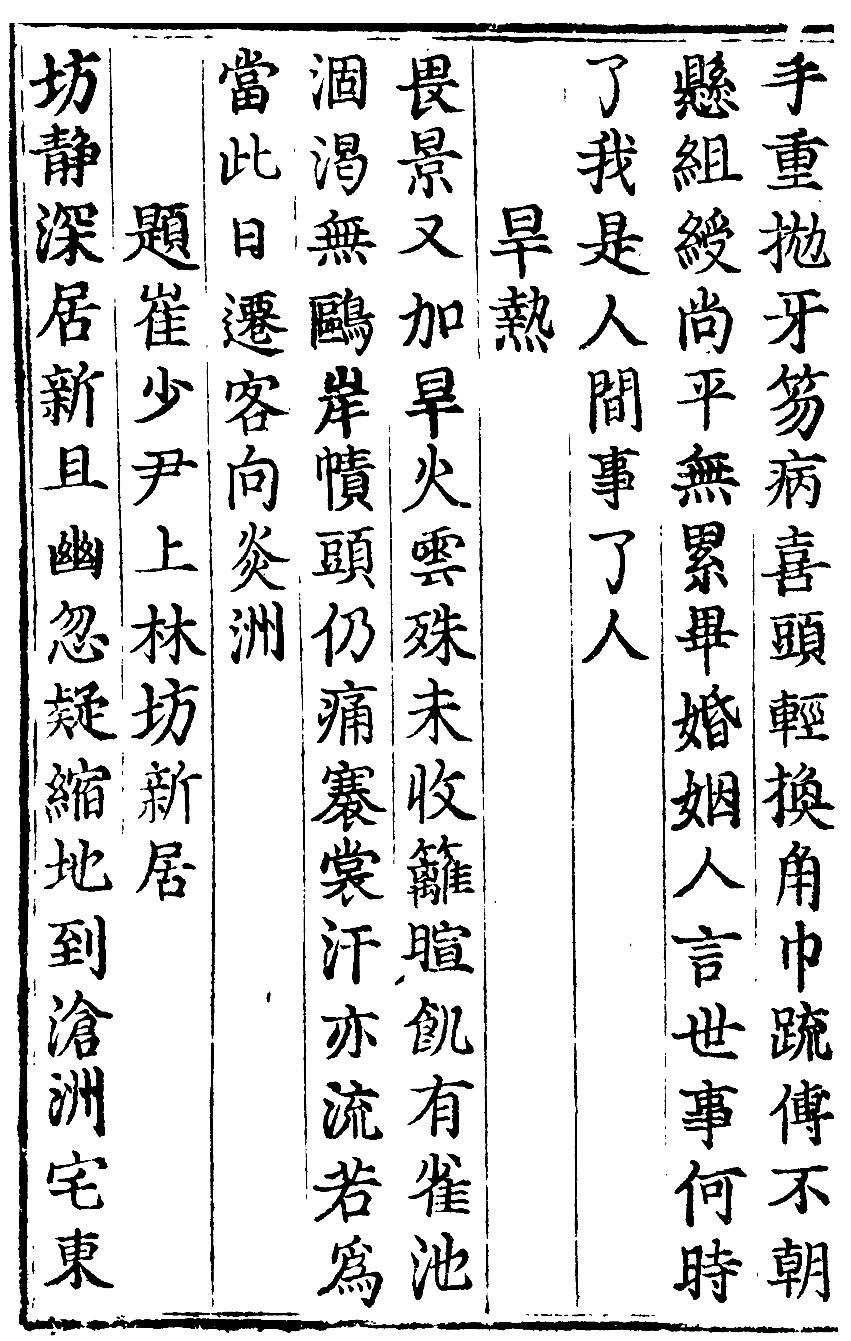 手重抛牙笏病喜頭輕換角巾踈傅不朝
懸組綬尚平無累畢婚姻人言世事何時
了我是人間事了人
旱熱
畏景又加旱火雲殊未收籬暄飢有雀池
涸渴無鷗岸幘頭仍痛褰裳汗亦流若爲
當此日遷客向炎洲
題崔少尹上林坊新居
坊静深居新且幽忽疑縮地到滄洲宅東